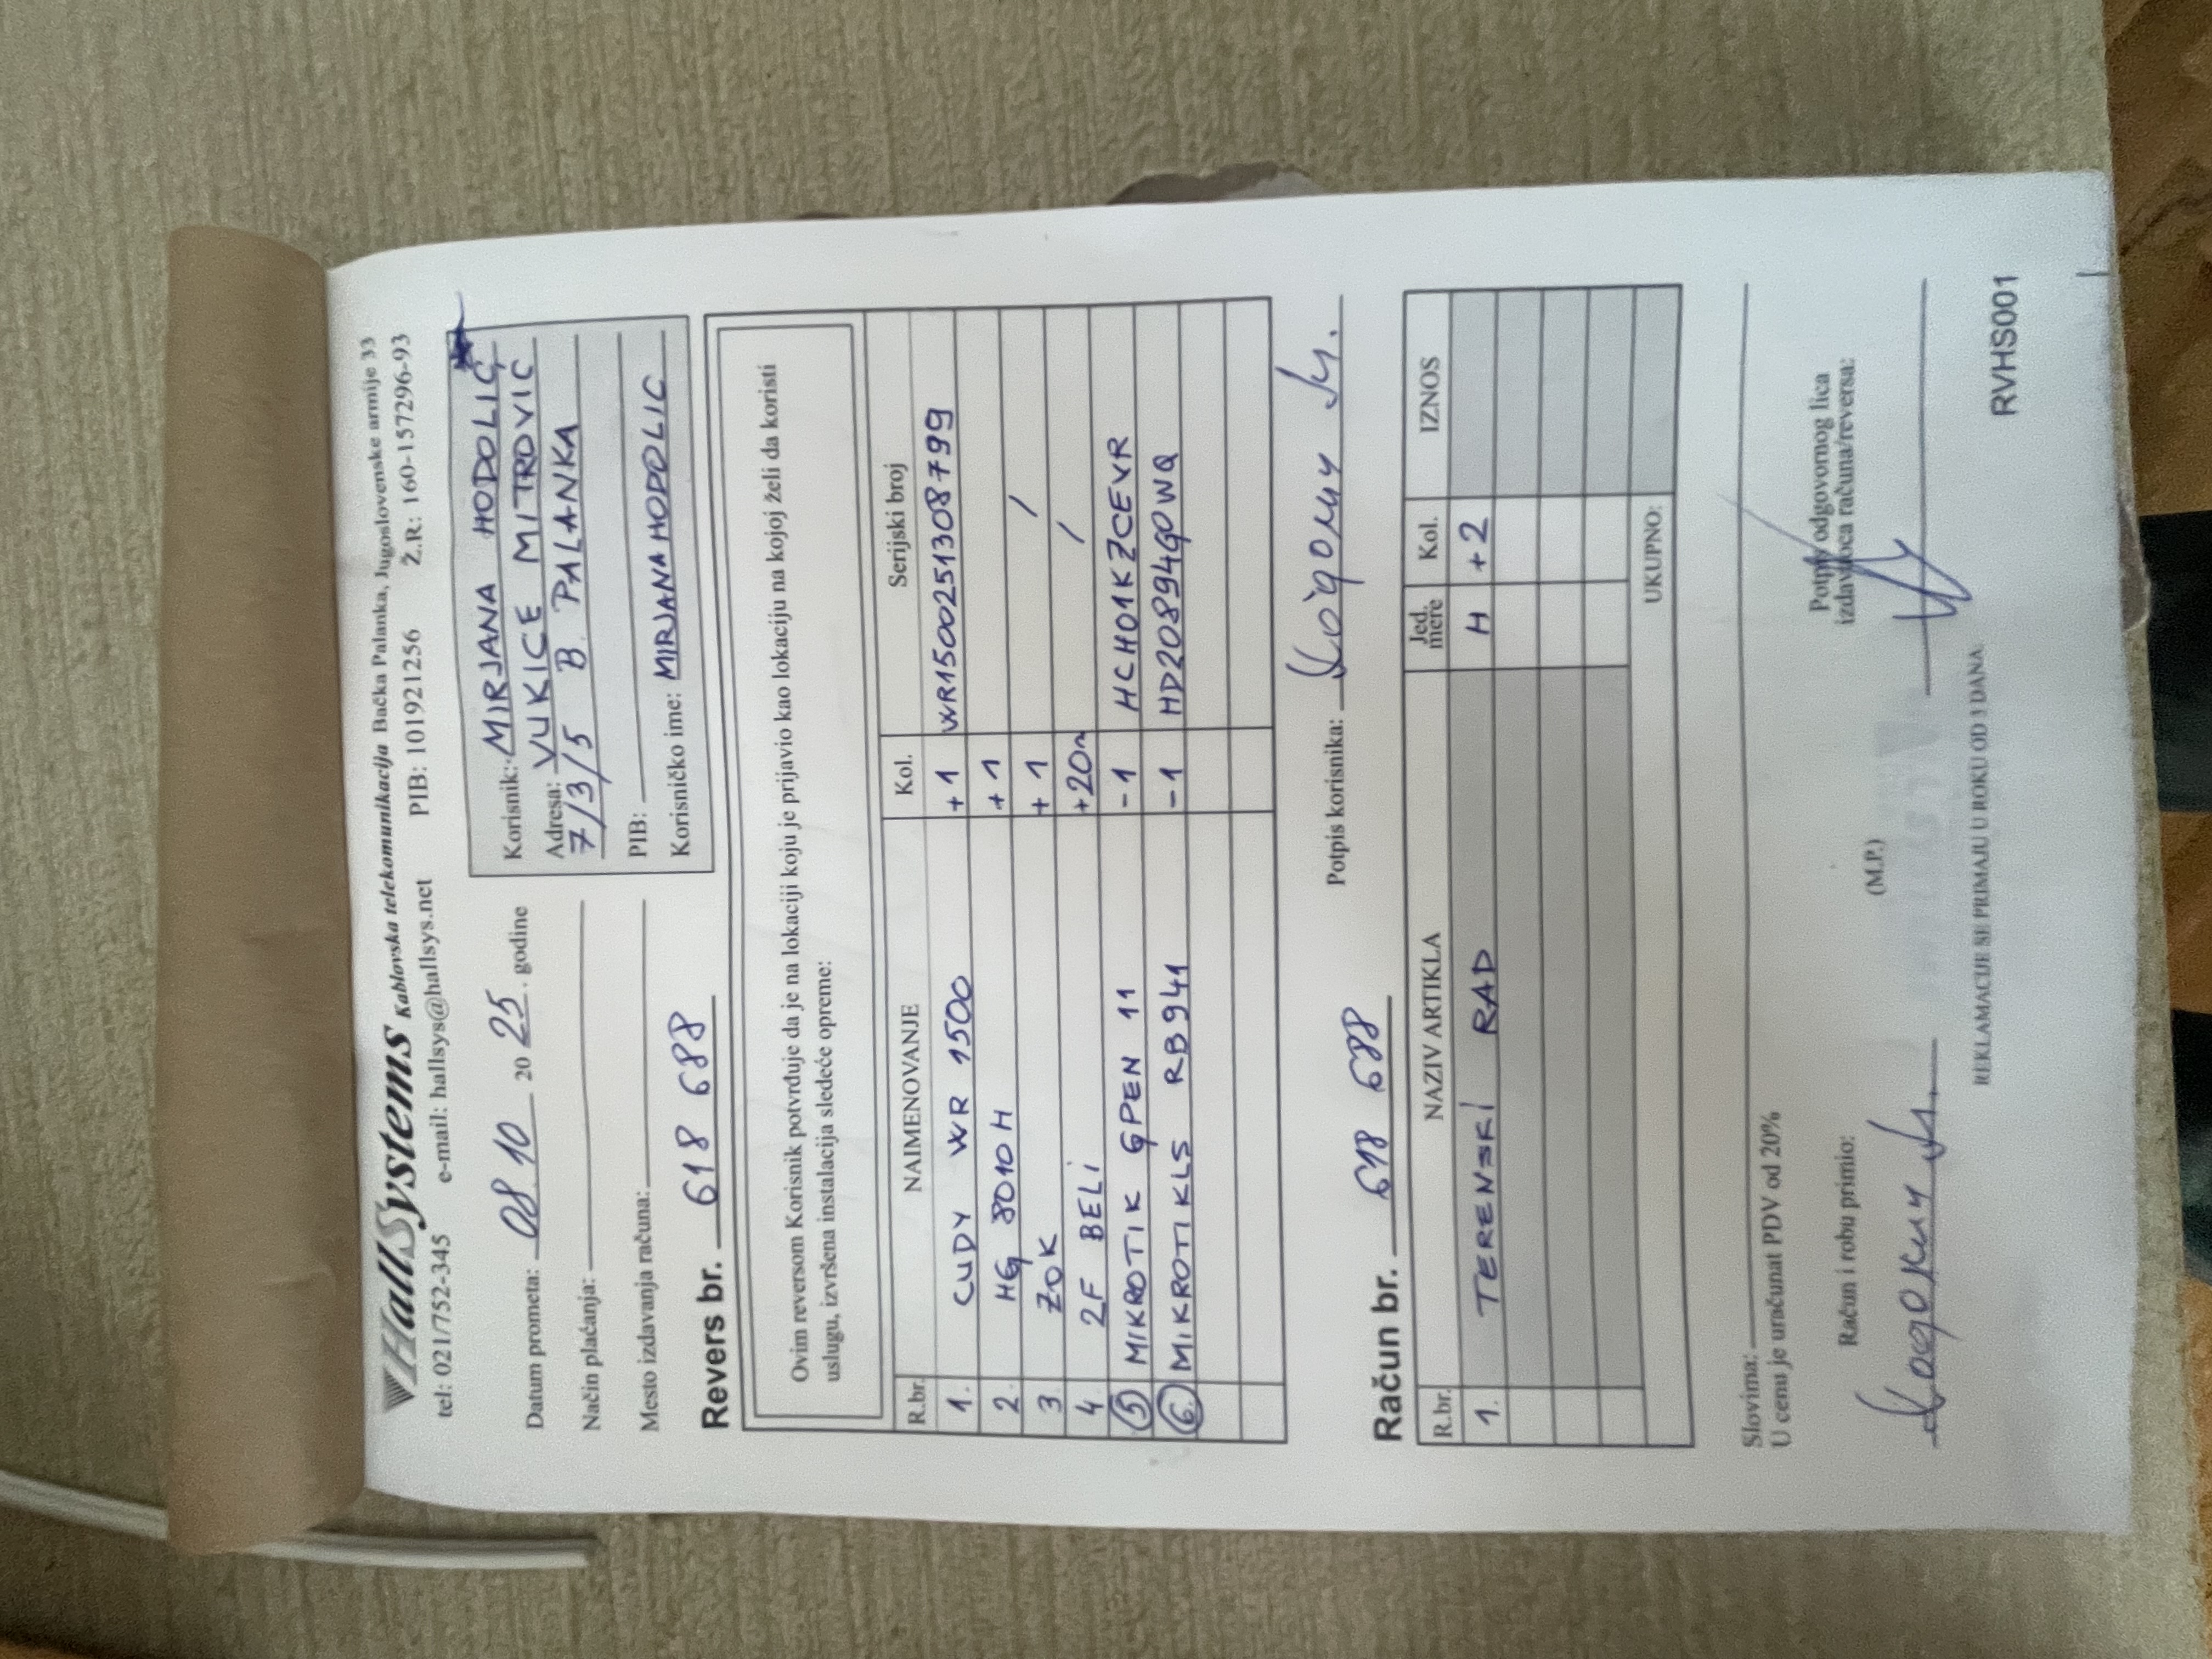 HallSystems Kablovska telekomunikacija Bačka Palanka, Jugoslovenske armije 33
tel: 021/752-345 e-mail: hallsys@hallsys.net PIB: 101921256 Ž.R: 160-157296-93
Datum prometa: 08.10 20 25. godine
Način plaćanja:
Mesto izdavanja računa:
Korisnik: MIRJANA HODOLIĆ
Adresa: VUKICE MITROVIĆ
7/3/5 B. PALANKA
PIB:
Korisničko ime: MIRJANAHODOLIC
Revers br. 618 688
Ovim reversom Korisnik potvrđuje da je na lokaciji koju je prijavio kao lokaciju na kojoj želi da koristi
uslugu, izvršena instalacija sledeće opreme:
R.br. NAIMENOVANJE Kol. Serijski broj
1. CUDY WR 1500 +1 WR1500251308799
2. HG 8010H +1
3. ZOK +1 /
4. 2F BELI +20m /
5 MIKROTIK GPEN 11 -1 HCH01KZCEVR
6. MIKROTIKLS RB941 -1 HD20894G0WQ
Potpis korisnika:
Račun br. 618 688
R.br. NAZIV ARTIKLA Jed. mere Kol. IZNOS
1. TERENSKI RAD H +2
UKUPNO:
Slovima:
U cenu je uračunat PDV od 20%
Račun i robu primio:
(M.P.)
Potpis odgovornog lica
izdavaoca računa/reversa:
REKLAMACIJE SE PRIMAJU U ROKU OD 3 DANA
RVHS001